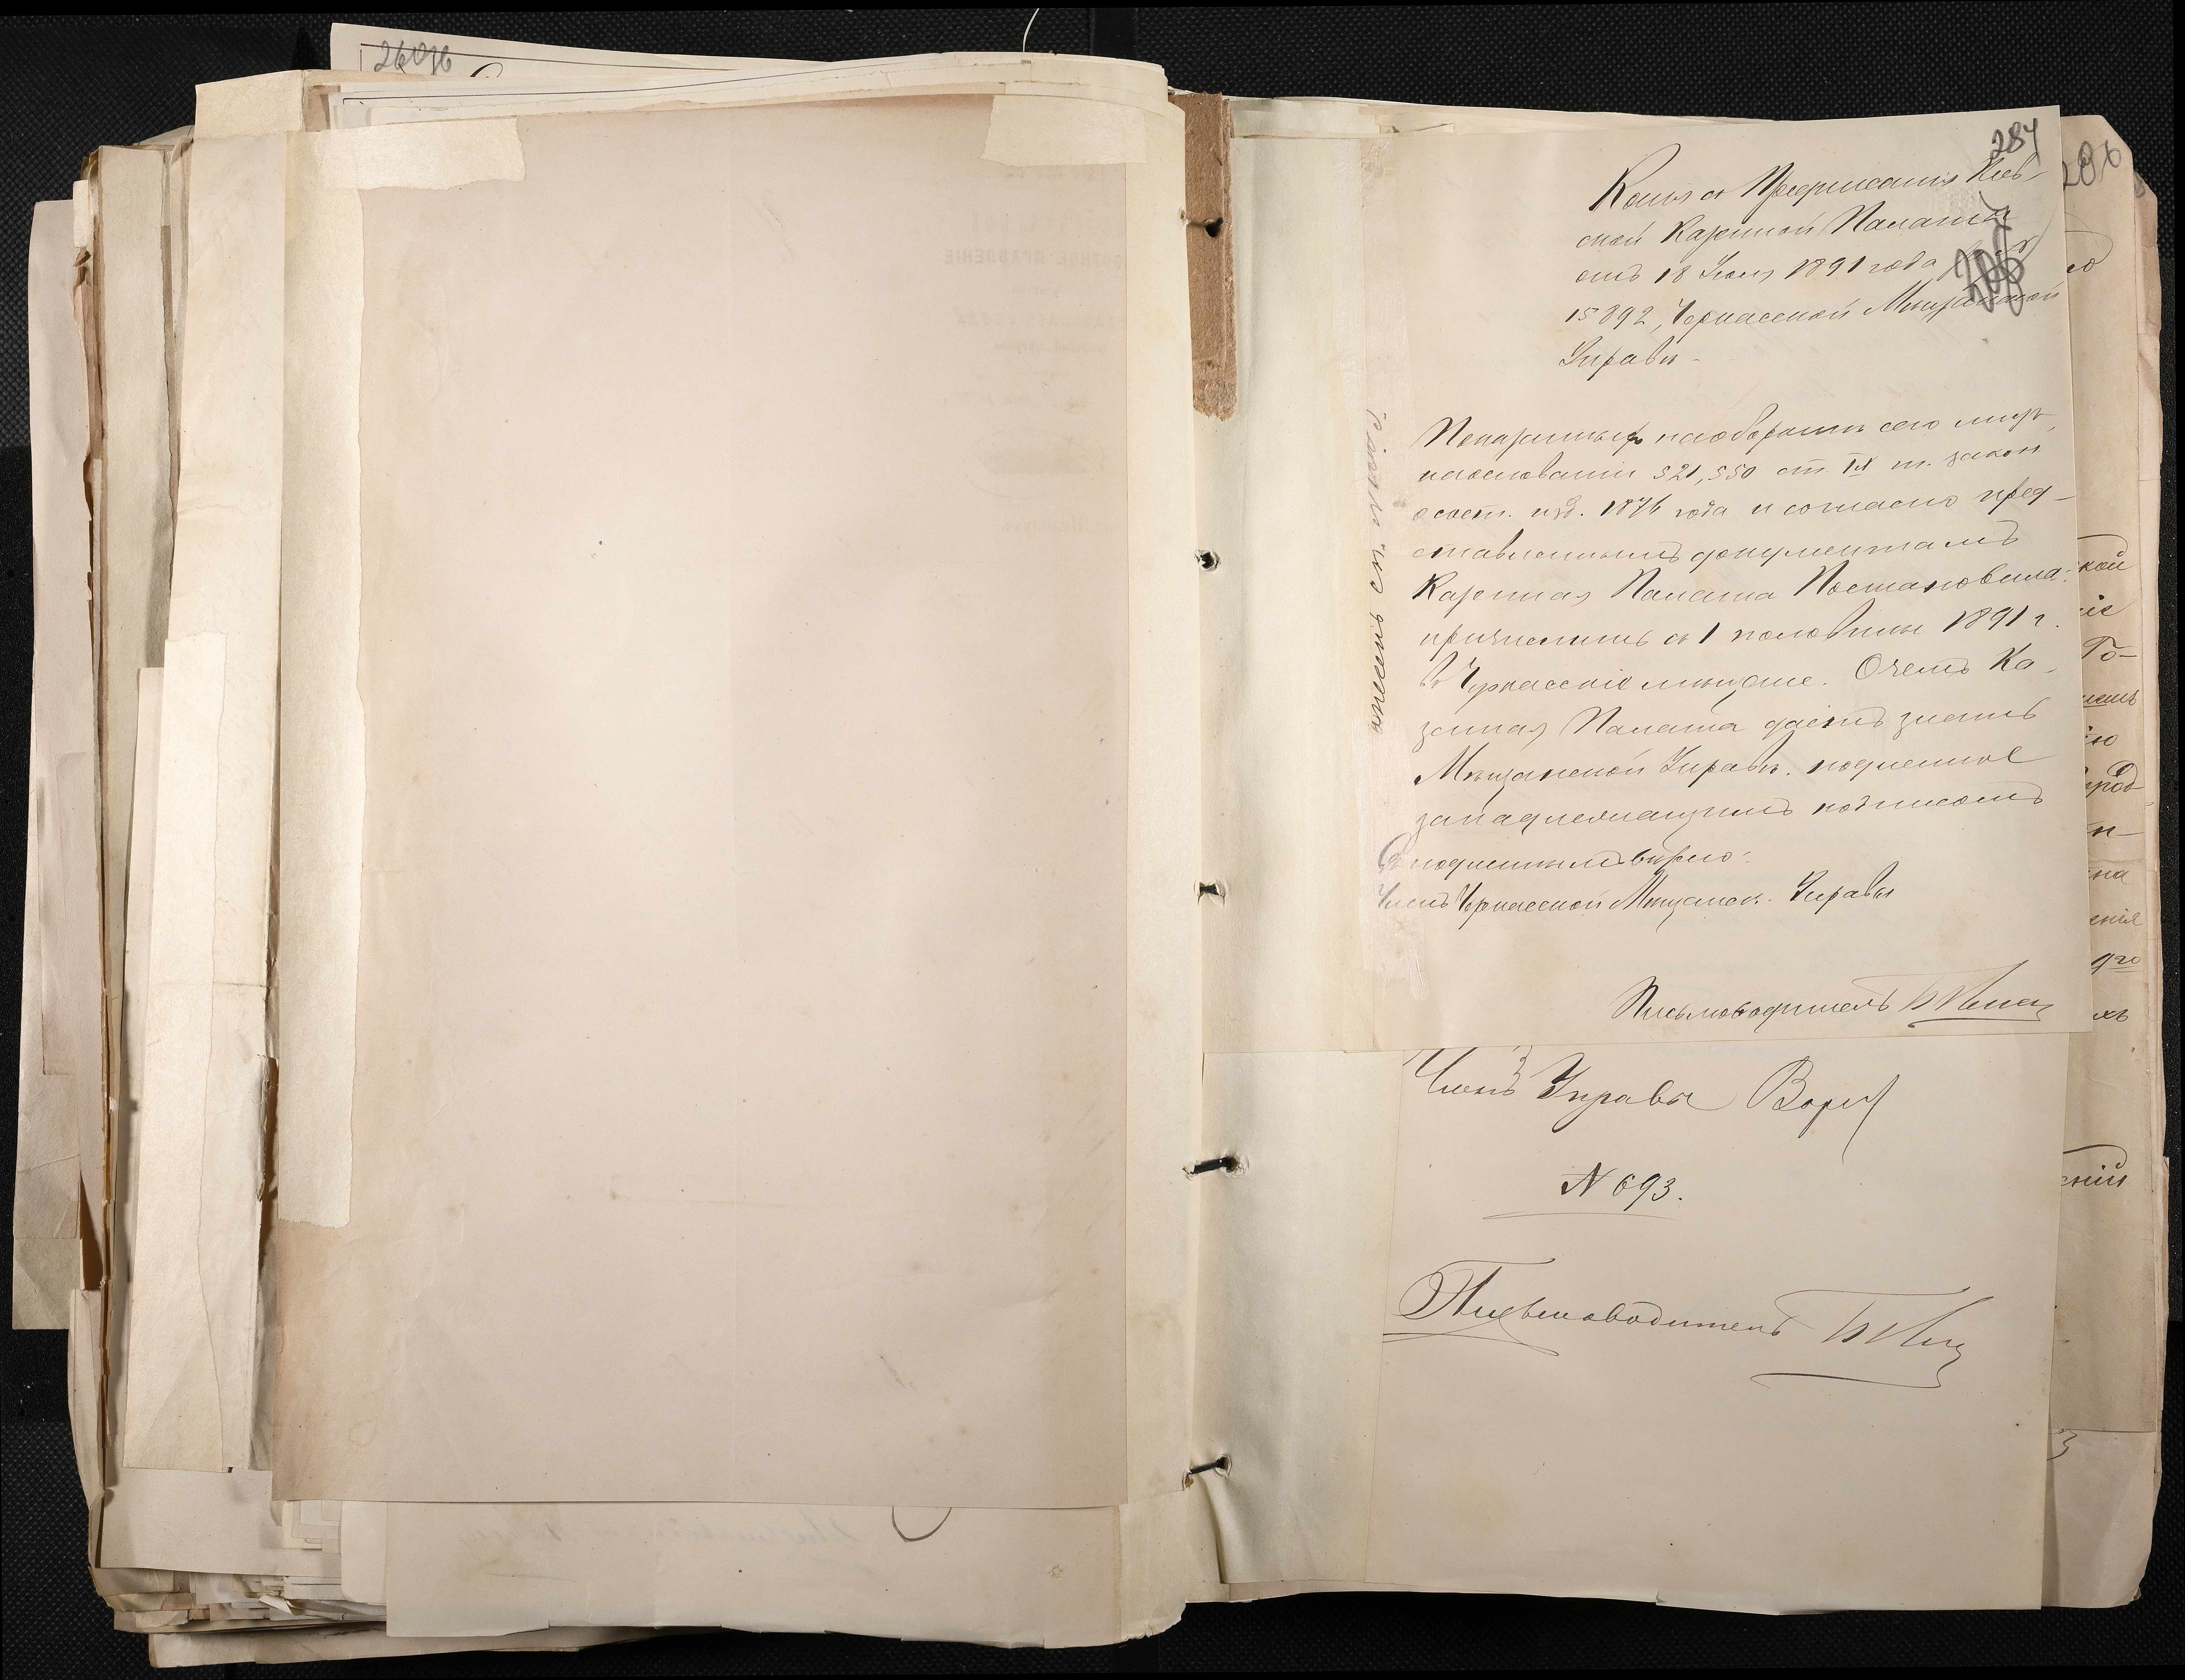 26096
284
Копія съ Предписанія Кіев-
ской Казенной Палаты
отъ 18 Іюня 1891 года за №
15892, Черкасской Мѣщанской
Управѣ.
Показанныхъ наоборотѣ сего лицъ,
наосновании 521, 550 ст. IX т. закон
о сост. изд. 1876 года и согласно пред-
ставленнымъ документамъ
Казенная Палата Постановила:
причислить съ 1 половины 1891 г.
въ Черкасскіе мѣщане. О чемъ Ка-
зенная Палата даетъ знать
Мѣщанской Управѣ. подленное
занадлежащимъ подписомъ
Съ подленнымъ вѣрно:
Членъ Черкасской Мѣщанск. Управы
Письмоводитель
Членъ Управы
N 693.
Письмоводитель
286
кой
іе
Го-
ію
на
енія
ній